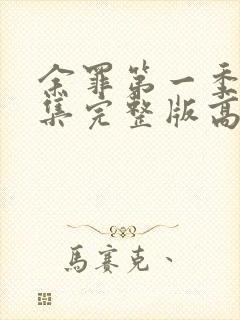 余罪第一季
集完整版高
馬賽克、